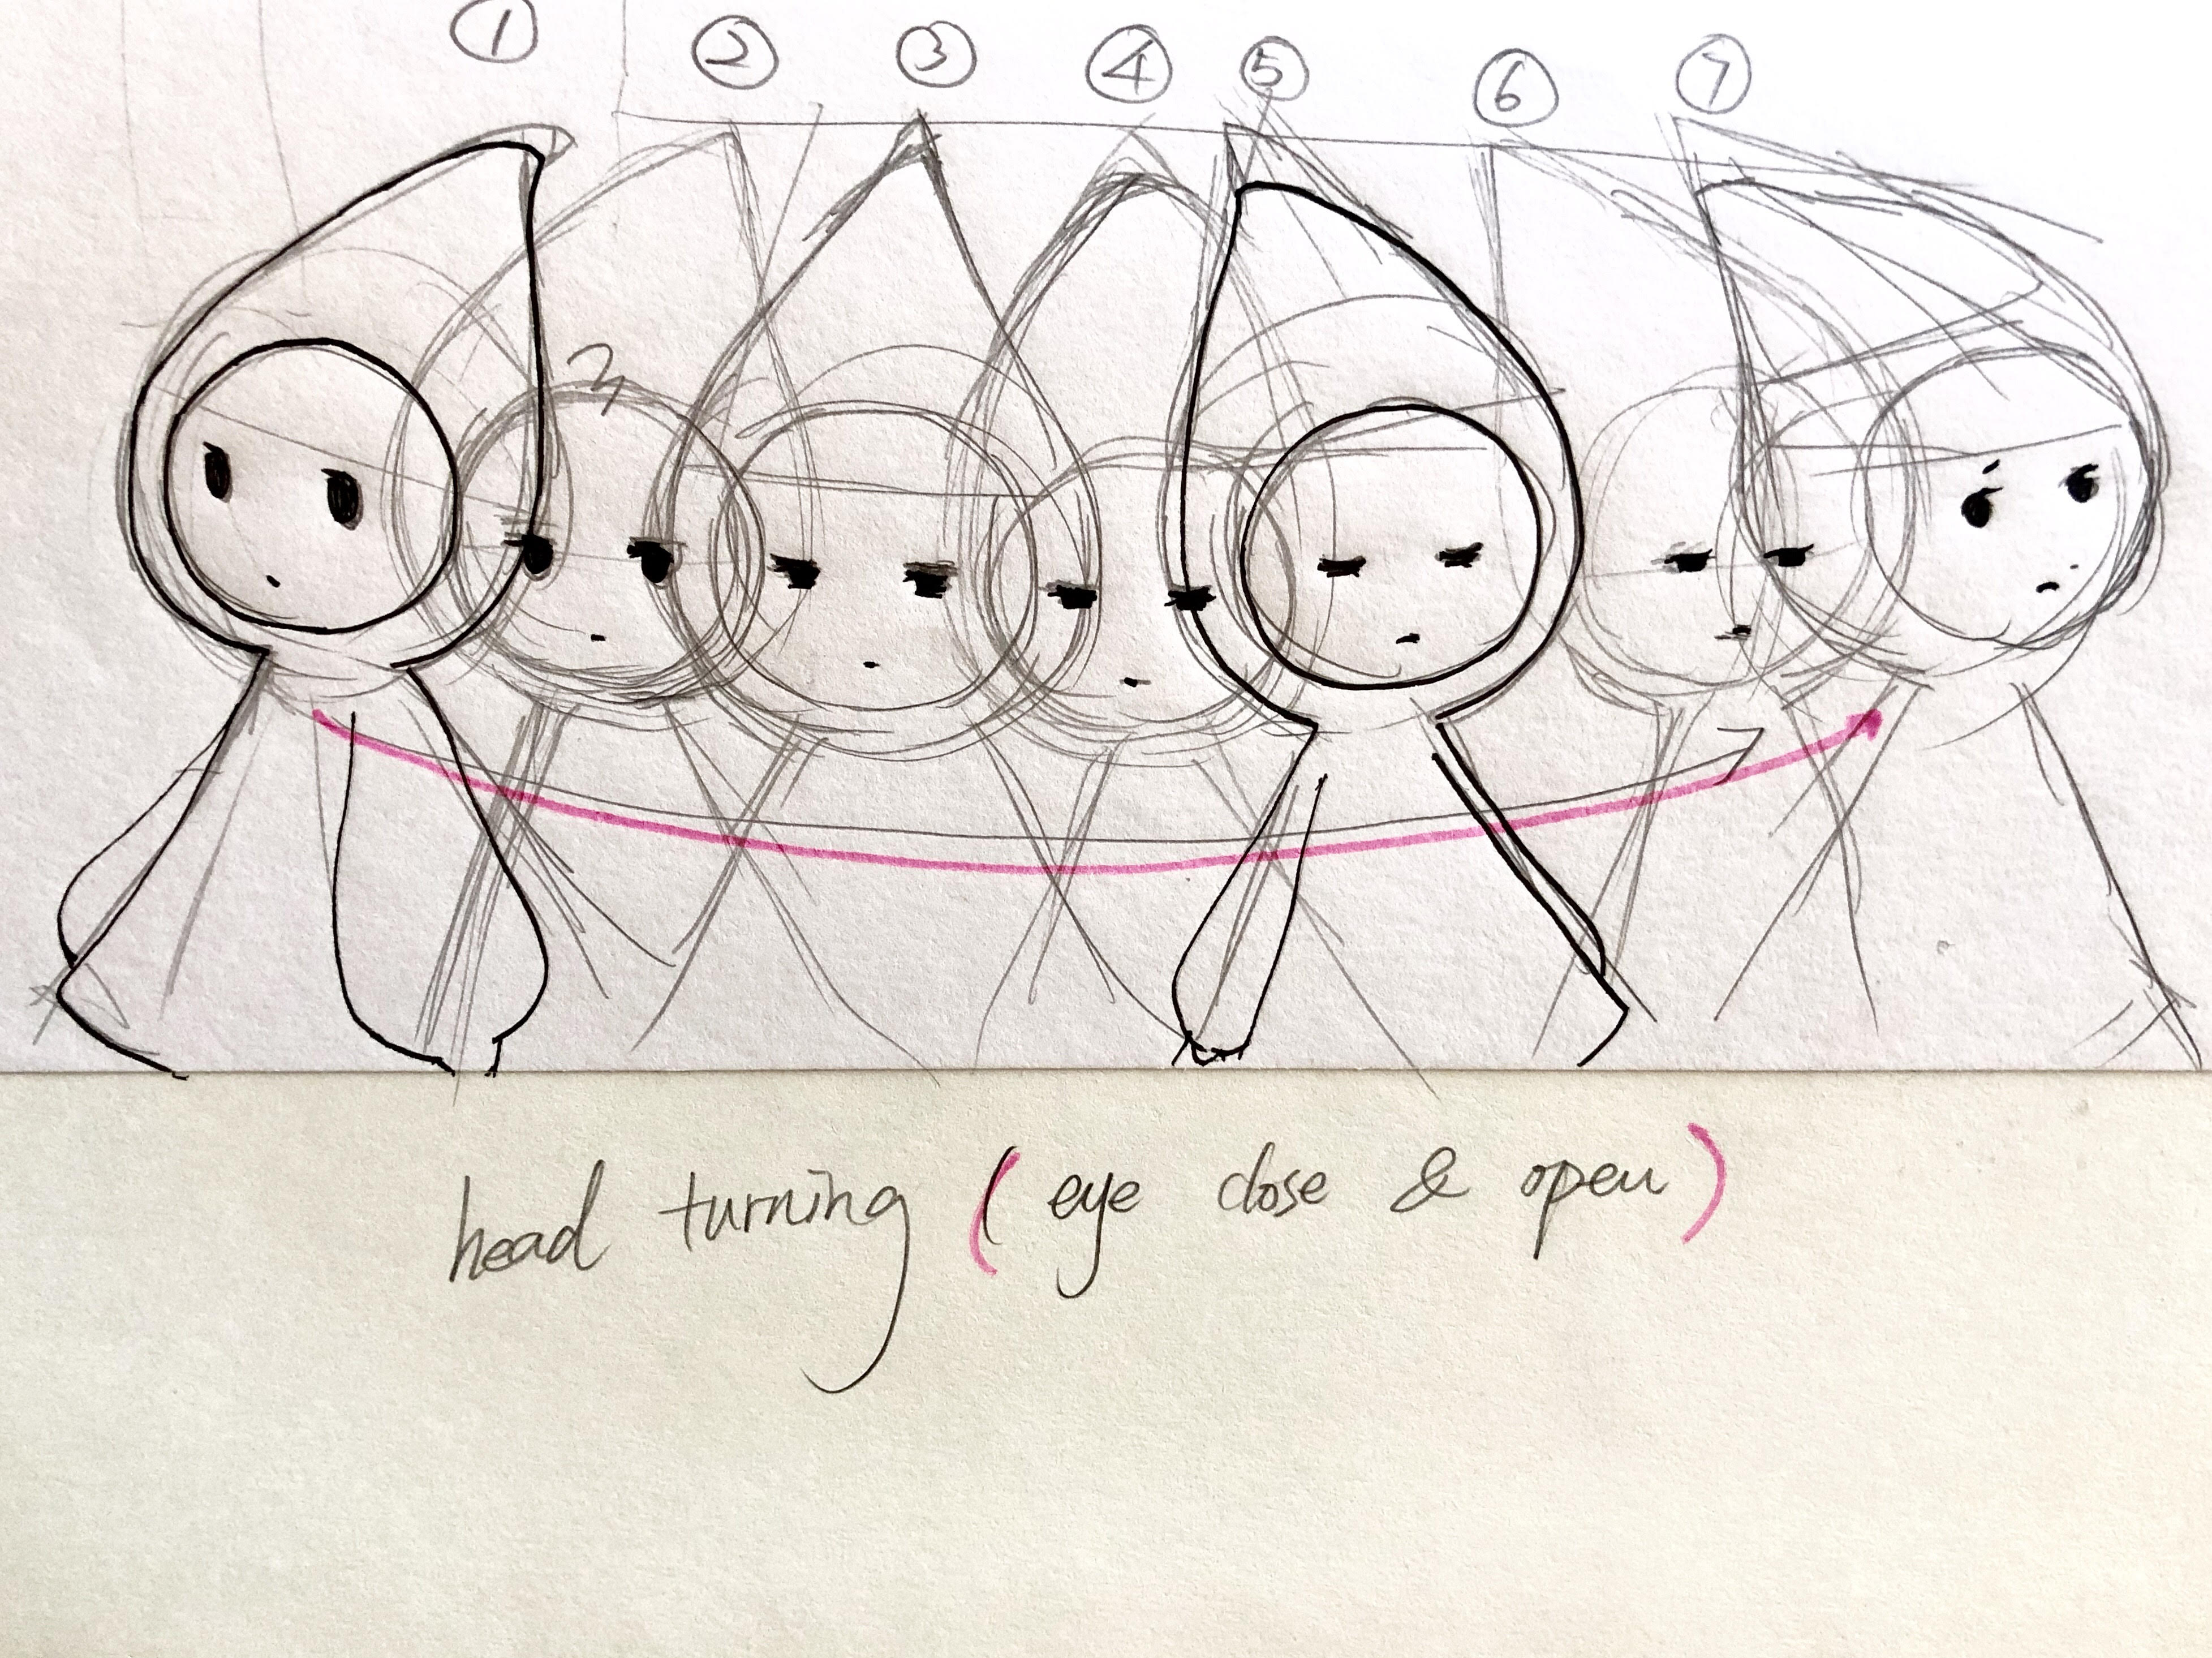 ① ② ③ ④ ⑤ ⑥ ⑦
head turning (eye close & open)